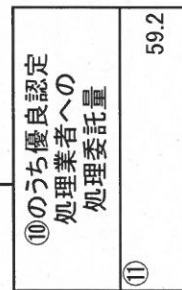 ⑩のうち優良認定
処理業者への
処理委託量
⑪
59.2